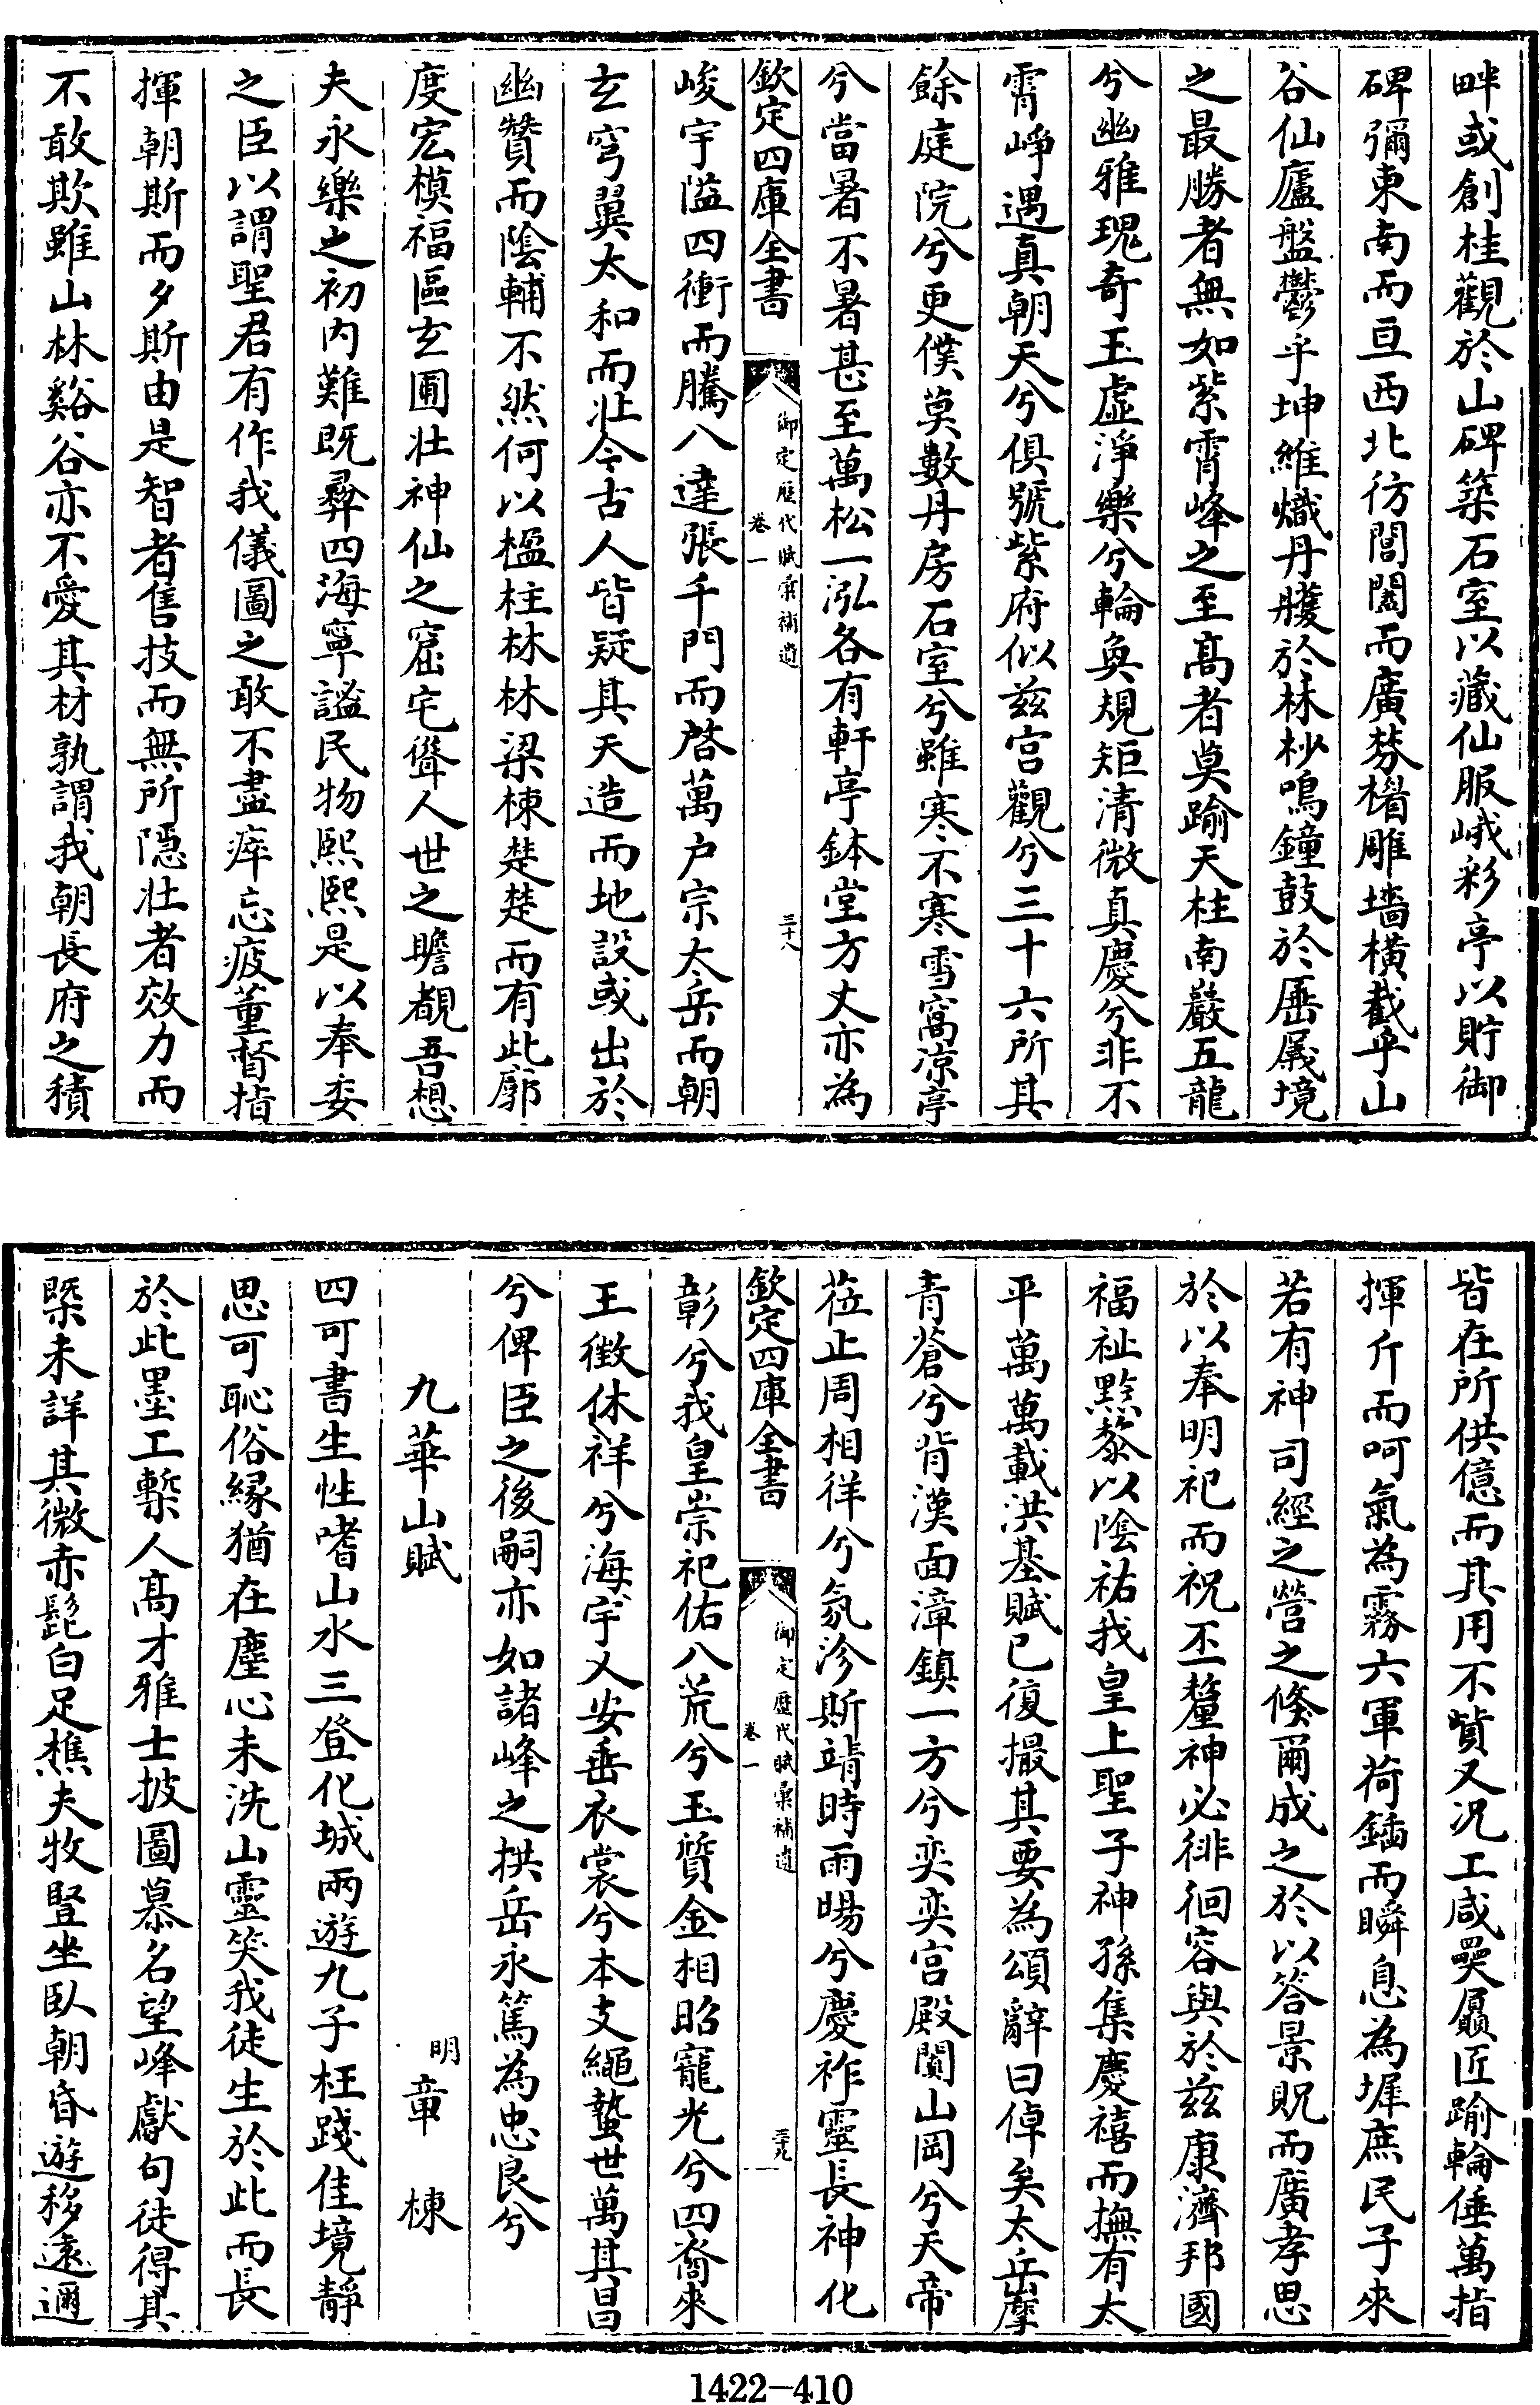 畔或創桂觀於山碑築石室以藏仙服峨彩亭以貯御
碑彌東南而亘西北彷閶闔而廣棼橑雕墻橫截乎山
谷仙廬盤鬱乎坤維熾丹雘於林杪鳴鐘鼓於厜㕒境
之最勝者無如紫霄峰之至高者莫踰天柱南巖五龍
兮幽雅瑰奇玉虛淨樂兮輪奐規矩清微真慶兮非不
霄崢遇真朝天兮俱號紫府似兹宫觀兮三十六所其
餘庭院兮更僕莫數丹房石室兮雖寒不寒雪窩凉亭
兮當暑不暑甚至萬松一泓各有軒亭鉢堂方丈亦為
欽定四庫全書
御定歷代賦彙補遺
卷一
三十八
峻宇隘四衝而騰八達張千門而啓萬户宗太岳而朝
玄穹翼太和而壯今古人皆疑其天造而地設或出於
幽贊而陰輔不然何以楹柱林林梁棟楚楚而有此廓
度宏模福區玄圃壯神仙之窟宅聳人世之瞻覩吾想
夫永樂之初内難既彛四海寧謐民物熙熙是以奉委
之臣以謂聖君有作我儀圖之敢不盡瘁忘疲董督指
揮朝斯而夕斯由是智者售技而無所隱壯者效力而
不敢欺雖山林谿谷亦不愛其材孰謂我朝長府之積
皆在所供億而其用不貲又况工咸奰屭匠踰輪倕萬指
揮斤而呵氣為霧六軍荷鍤而瞬息為墀庶民子來
若有神司經之營之倏爾成之於以答景貺而廣孝思
於以奉明祀而祝丕釐神必徘徊容與於兹康濟邦國
福祉黔黎以陰祐我皇上聖子神孫集慶禧而撫有太
平萬萬載洪基賦已復撮其要為頌辭曰倬矣太岳摩
青蒼兮背漢面漳鎮一方兮奕奕宫殿閴山岡兮天帝
莅止周相徉兮氛沴斯靖時雨暘兮慶祚靈長神化
欽定四庫全書
御定歷代賦彙補遺
卷一
三十九
彰兮我皇崇祀佑八荒兮玉質金相昭寵光兮四裔來
王徵休祥兮海宇乂安垂衣裳兮本支繩蟄世萬其昌
兮俾臣之後嗣亦如諸峰之拱岳永篤為忠良兮
九華山賦
明章棟
四可書生性嗜山水三登化城兩遊九子枉踐佳境靜
思可恥俗緣猶在塵心未洗山靈笑我徒生於此而長
於此墨工槧人高才雅士披圖慕名望峰獻句徒得其
槩未詳其微赤髭白足樵夫牧豎坐臥朝昏遊移遠邇
1422-410